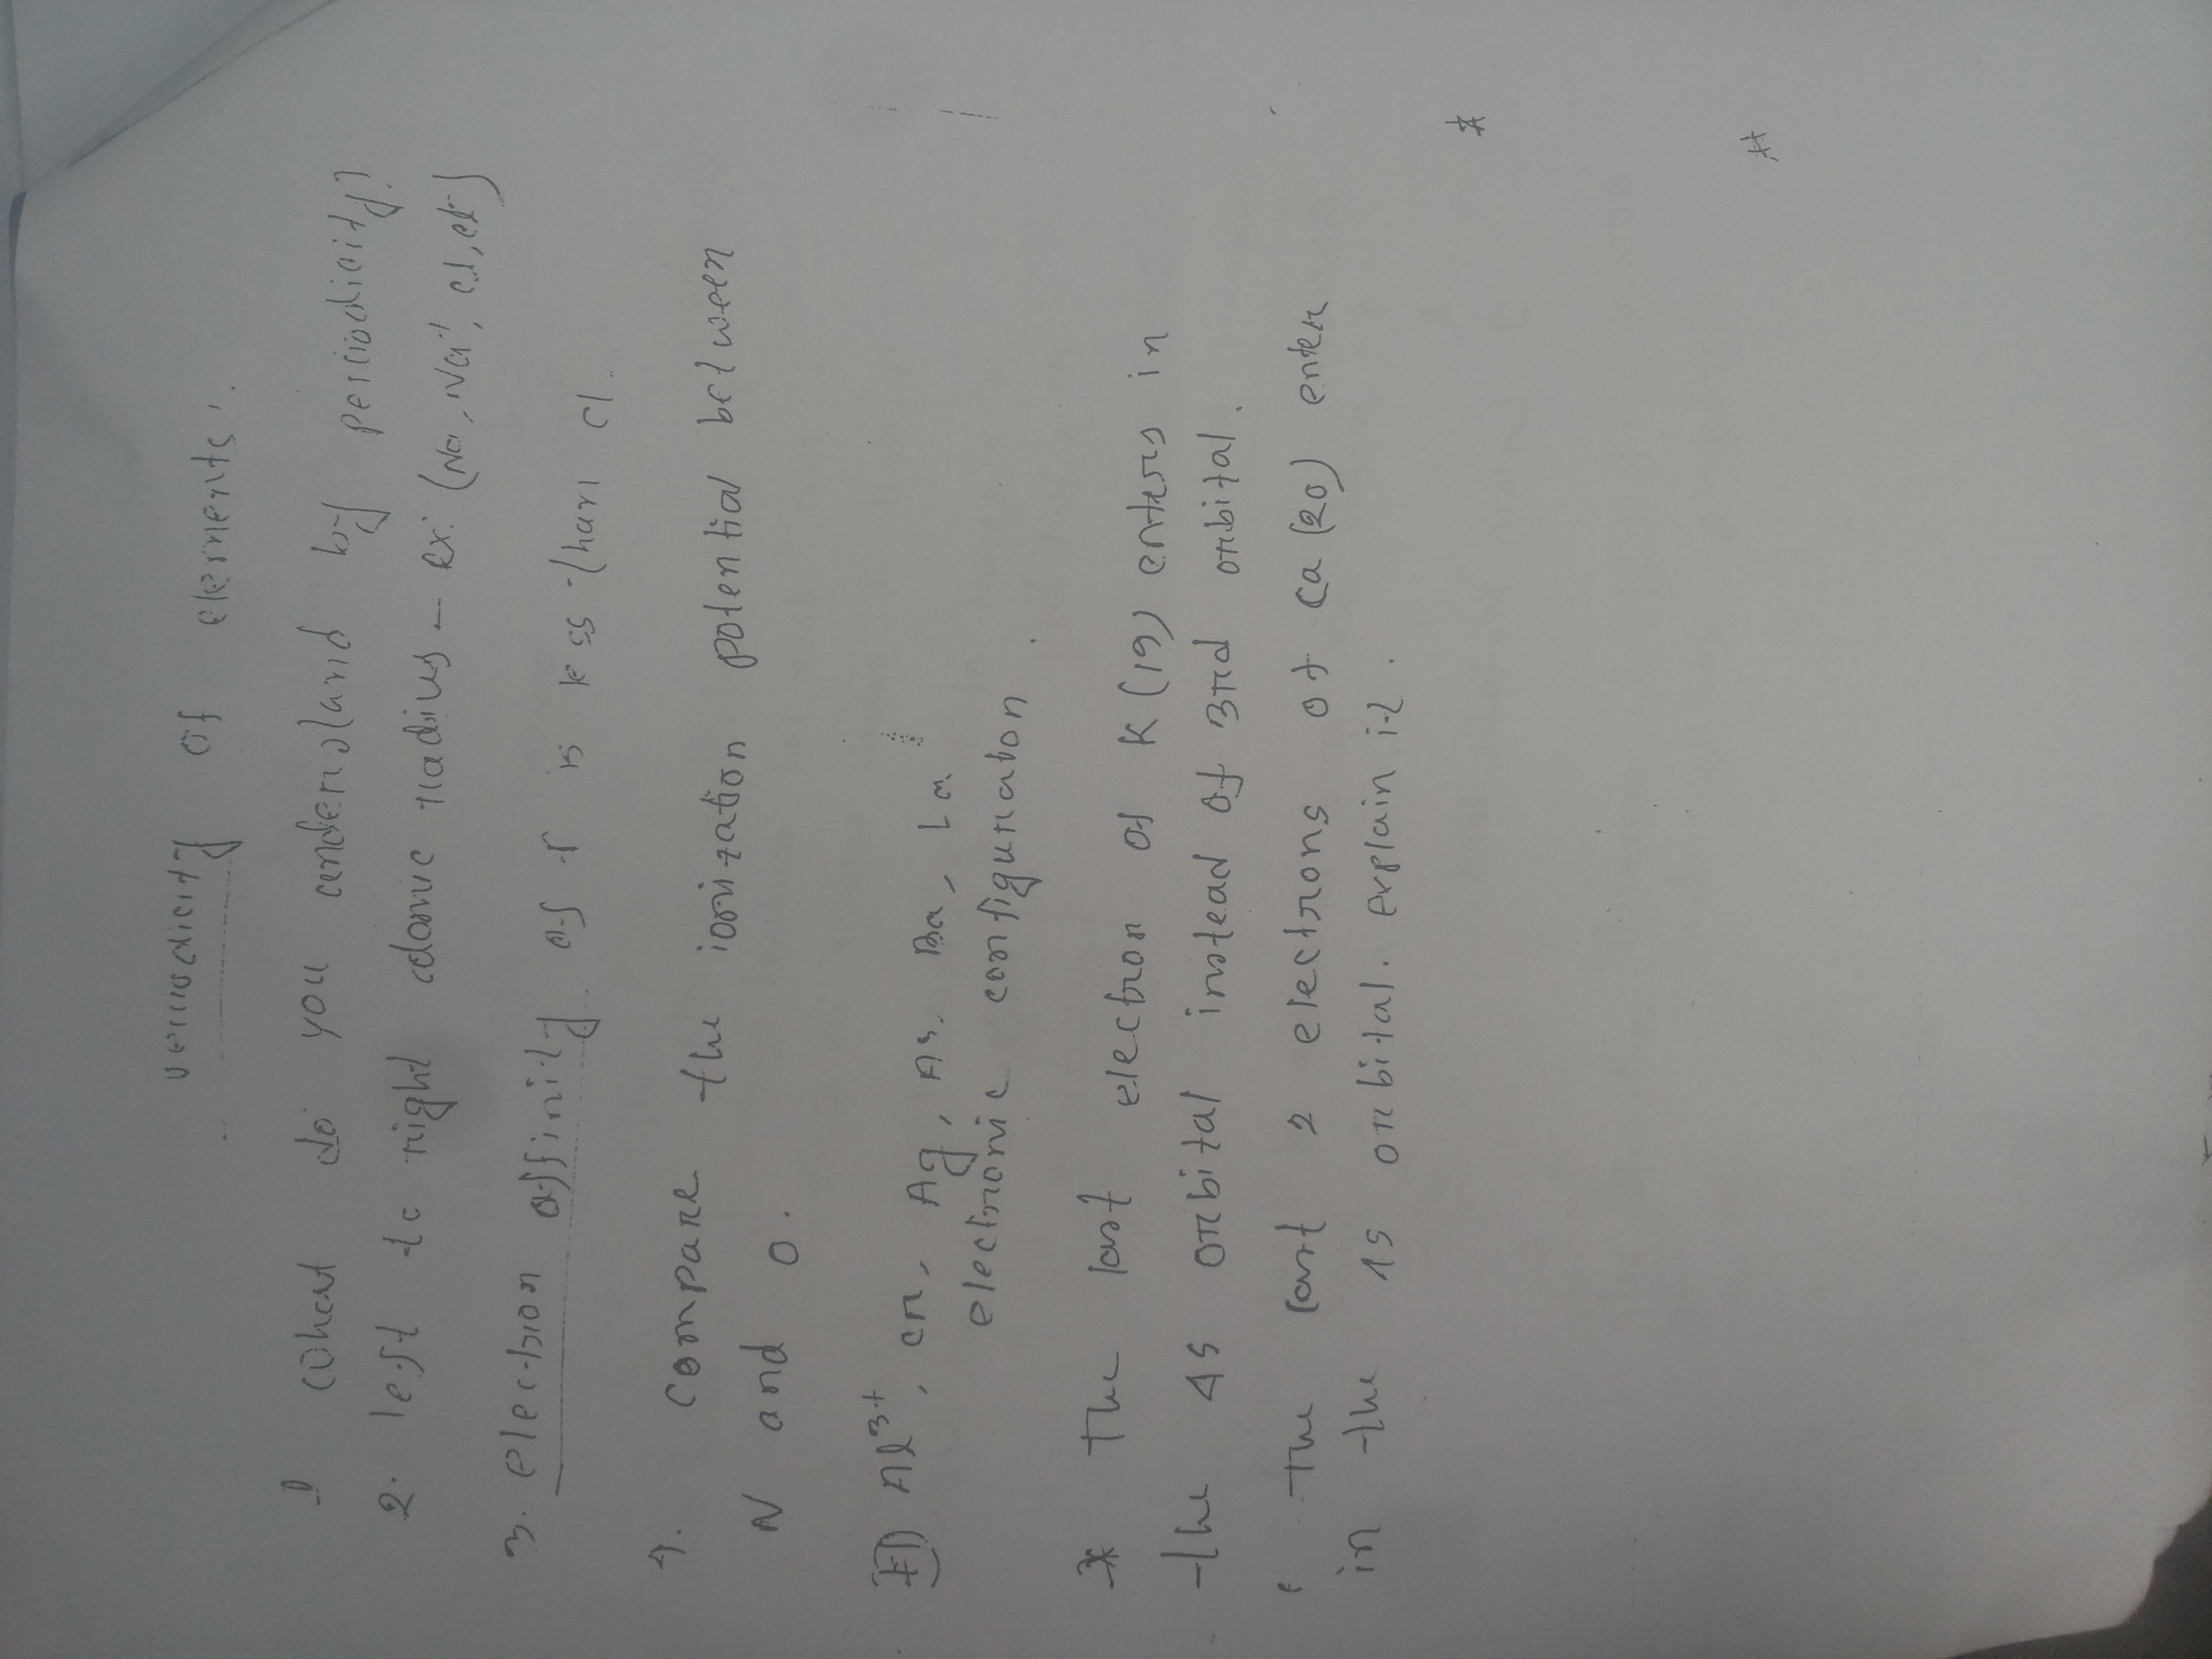 Periodicity of elements.
1 What do you understand by periodicity?
2. left to right atomic radius – ex: (Na, Na+, cl, cl-)
3. electron affinity of F is less than cl.
4. compare the ionization potential between
N and O.
Al3+, cr, Ag, As, Ba, La
electronic configuration
* The last electron of K (19) enters in
the 4s orbital instead of 3rd orbital.
The last 2 electrons of ca (20) enter
in the 1s orbital. explain it.
*
**